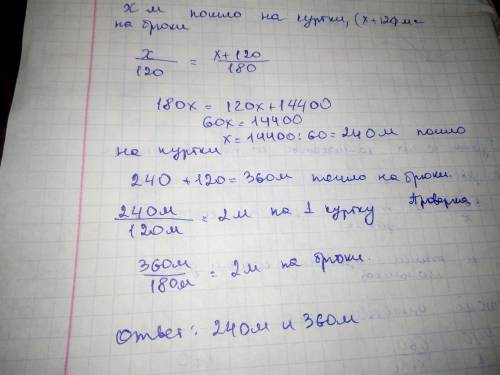 х м пошло на куртки, (х+120)м
на брюки
х/120 = х+120/180
180х = 120х+14400
60х = 14400
х = 14400:60 = 240м пошло
на куртки
240 +120 = 360м пошло на брюки.
240м/120м = 2м на 1 куртку Проверка
360м/180м = 2м на брюки.
Ответ: 240м и 360м